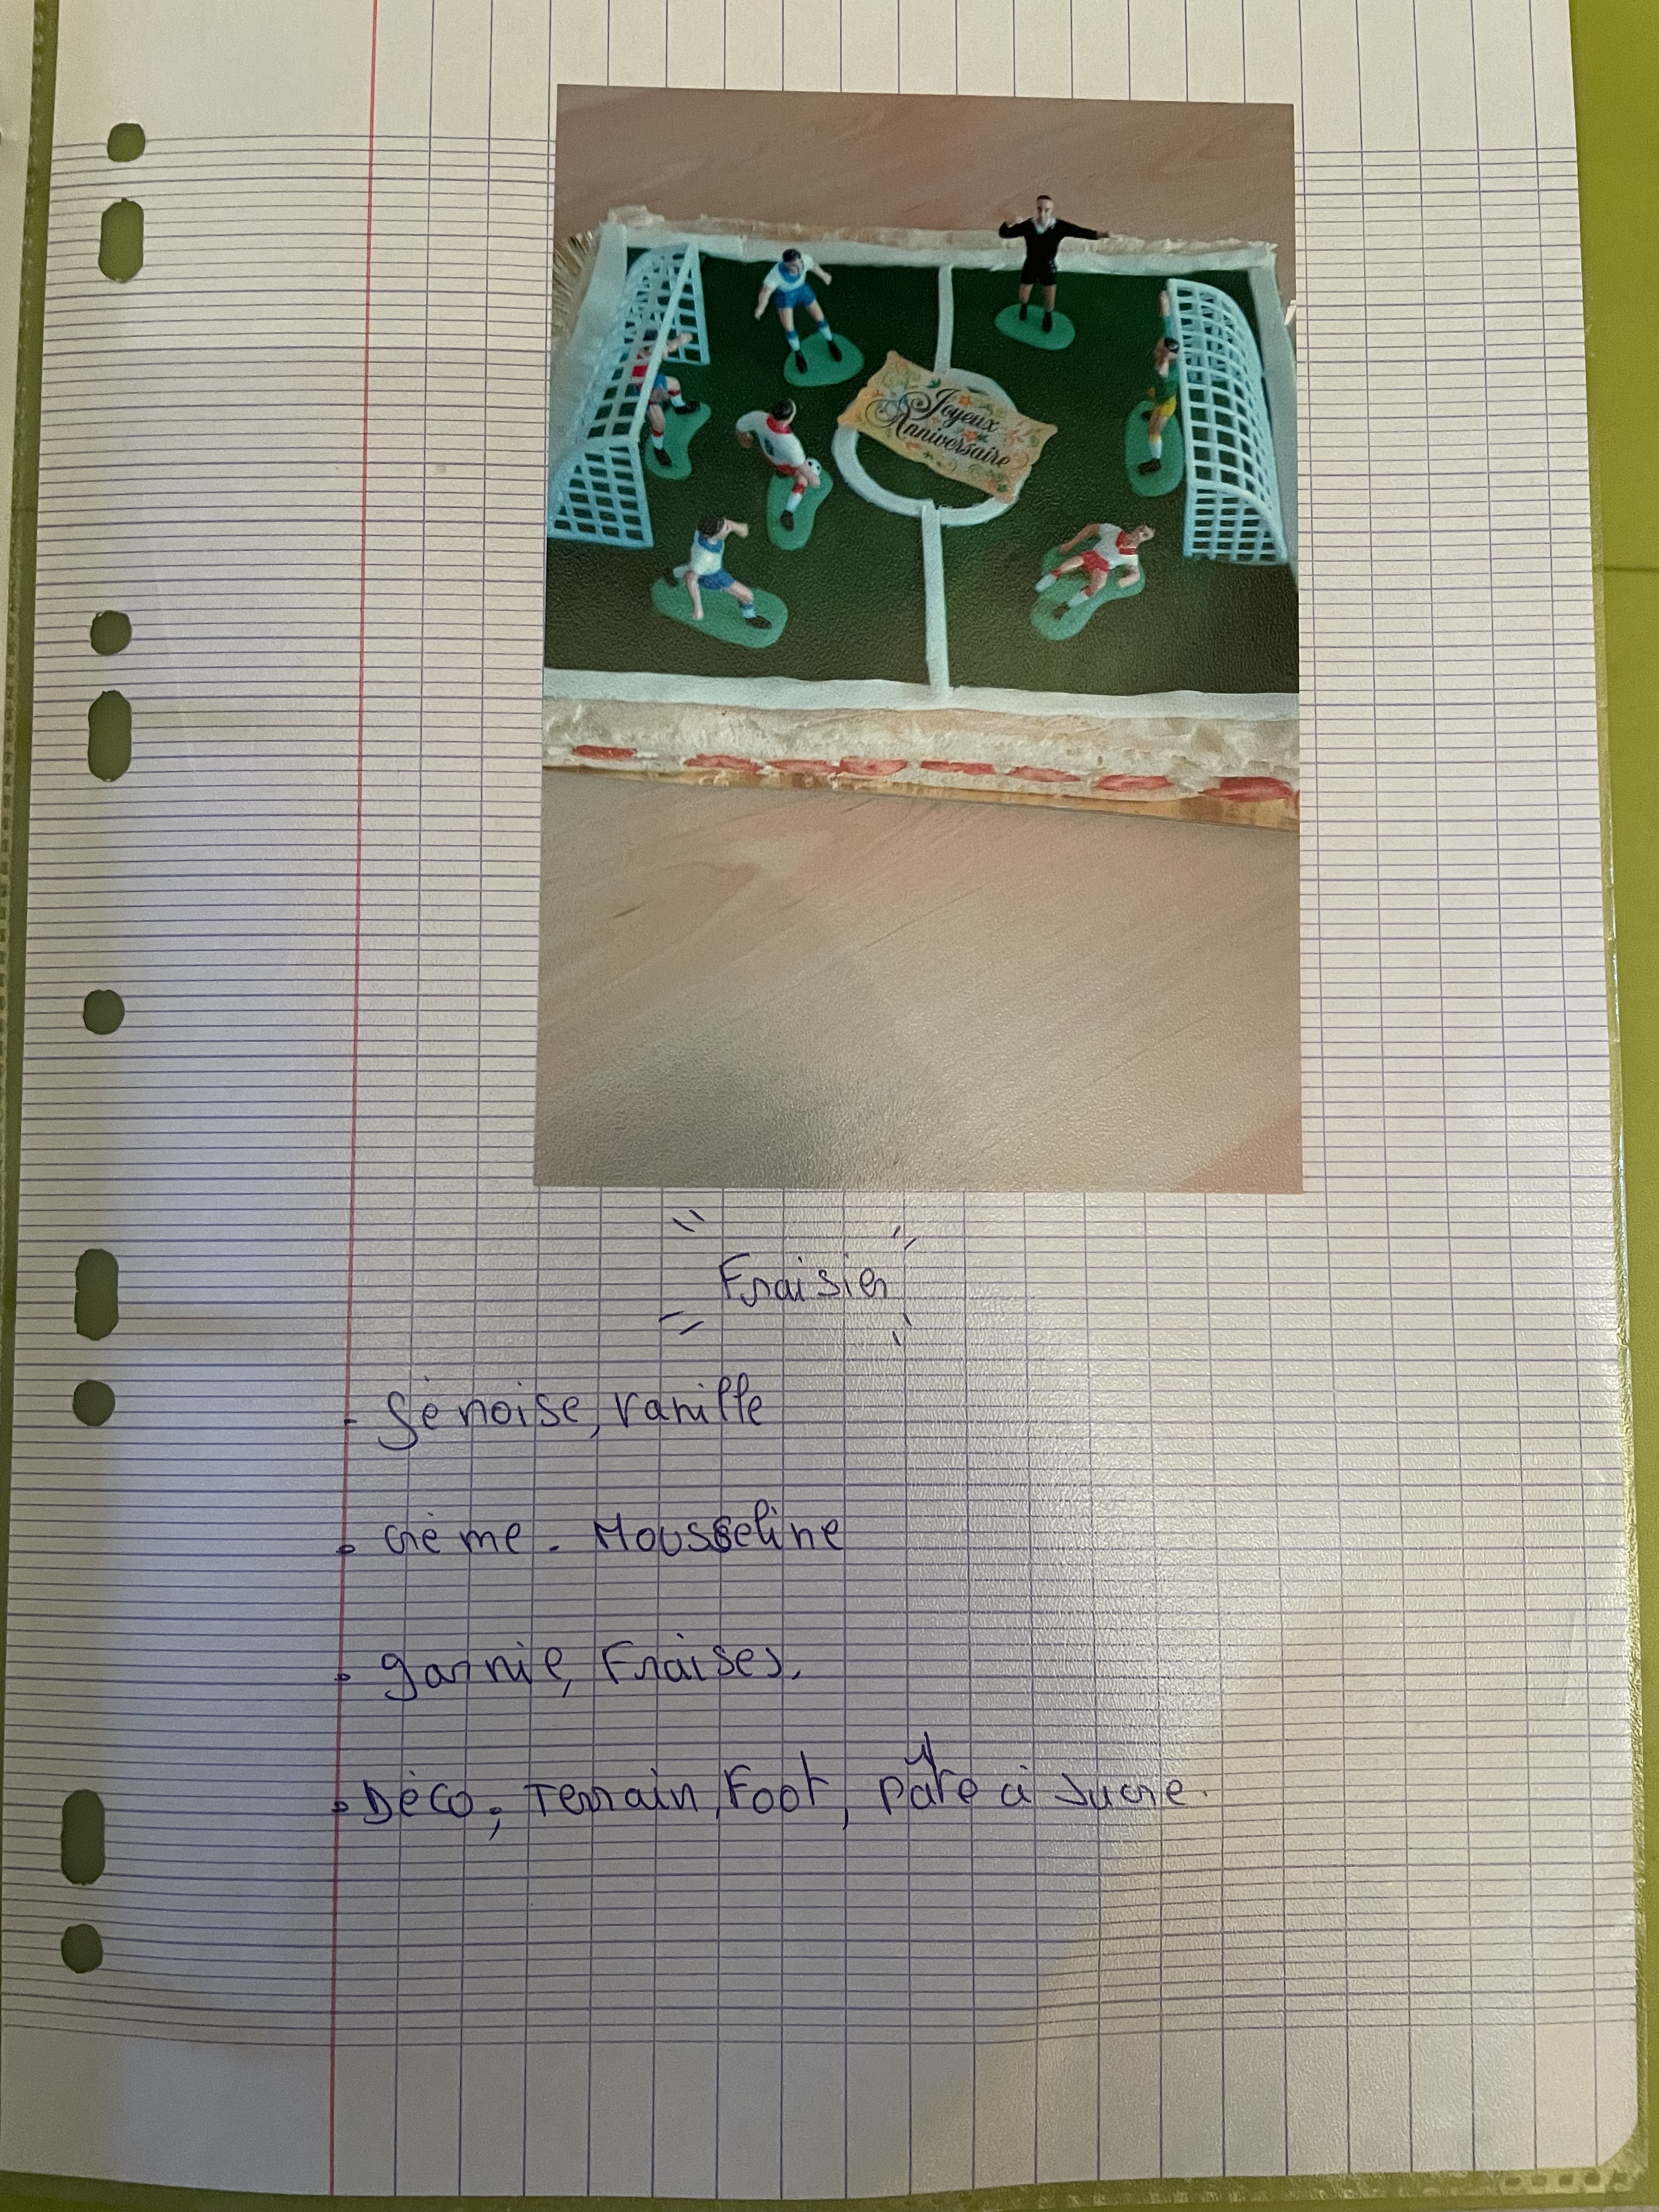 Joyeux
Anniversaire
Fraisier
- Génoise, vanille
• crème - Mousseline
• garnie, Fraises.
• Déco, Terrain, Foot, pâte à sucre.